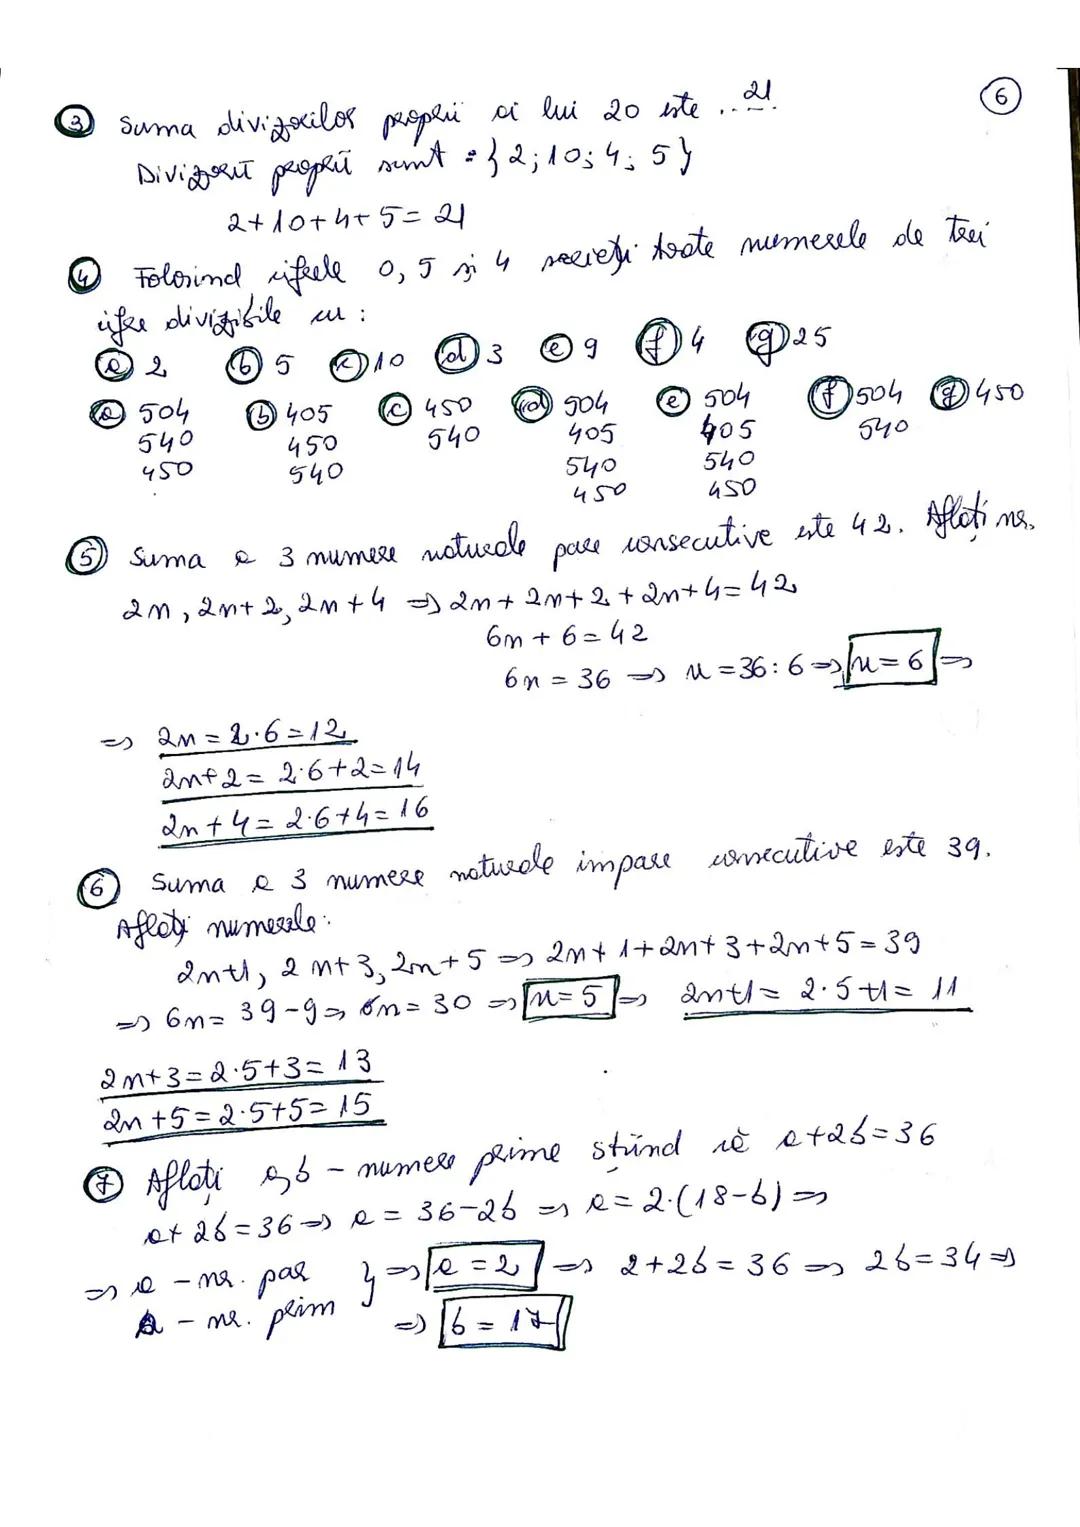 6
3 Suma divizorilor proprii ai lui 20 este ..21.
Divizorii proprii sunt = {2;10;4;5}
2+10+4+5=21
4 Folosind cifrele 0, 5 și 4 scrieți toate numerele de trei
cifre divizibile cu :
a 2 b 5 c 10 d 3 e 9 f 4 g 25
a 504 b 405 c 450 d 504 e 504 f 504 g 450
540 450 540 405 405 540
450 540 540 540
450 450
5 Suma a 3 numere naturale pare consecutive este 42. Aflați nr.
2n, 2n+2, 2n+4 => 2n+2n+2+2n+4=42
6n+6=42
6n=36 => n=36:6 => n=6 =>
=> 2n=2·6=12
2n+2=2·6+2=14
2n+4=2·6+4=16
6 Suma a 3 numere naturale impare consecutive este 39.
Aflați numerele.
2n+1, 2n+3, 2n+5 => 2n+1+2n+3+2n+5=39
=> 6n=39-9 => 6n=30 => n=5 => 2n+1=2·5+1=11
2n+3=2·5+3=13
2n+5=2·5+5=15
7 Aflați a,b - numere prime știind că a+2b=36
a+2b=36 => a=36-2b => a=2·(18-b) =>
=> a - nr. par } => a=2 => 2+2b=36 => 2b=34 =>
a - nr. prim => b=17